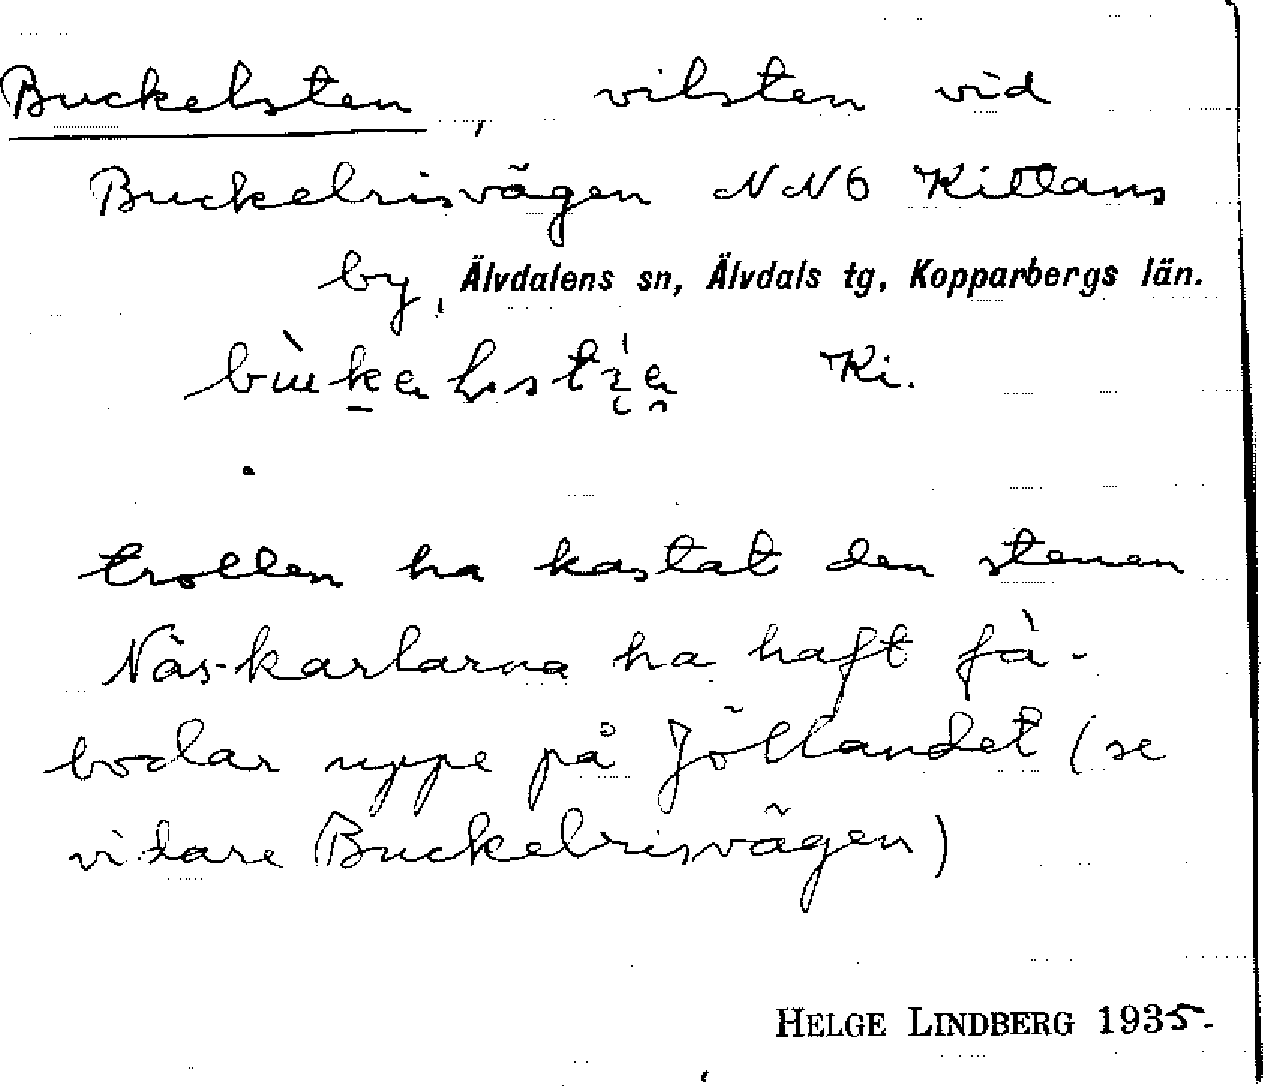 Buckelsten, vilsten vid
Buckelrisvägen NNÖ Kittans
by, Älvdalens sn, Älvdals tg, Kopparbergs län.
Ki.
trollen ha kastat den stenen
Näs-karlarna ha haft fä-
bodar uppe på Jöllandet (se
vidare Buckelrisvägen)
HELGE LINDBERG 1935.